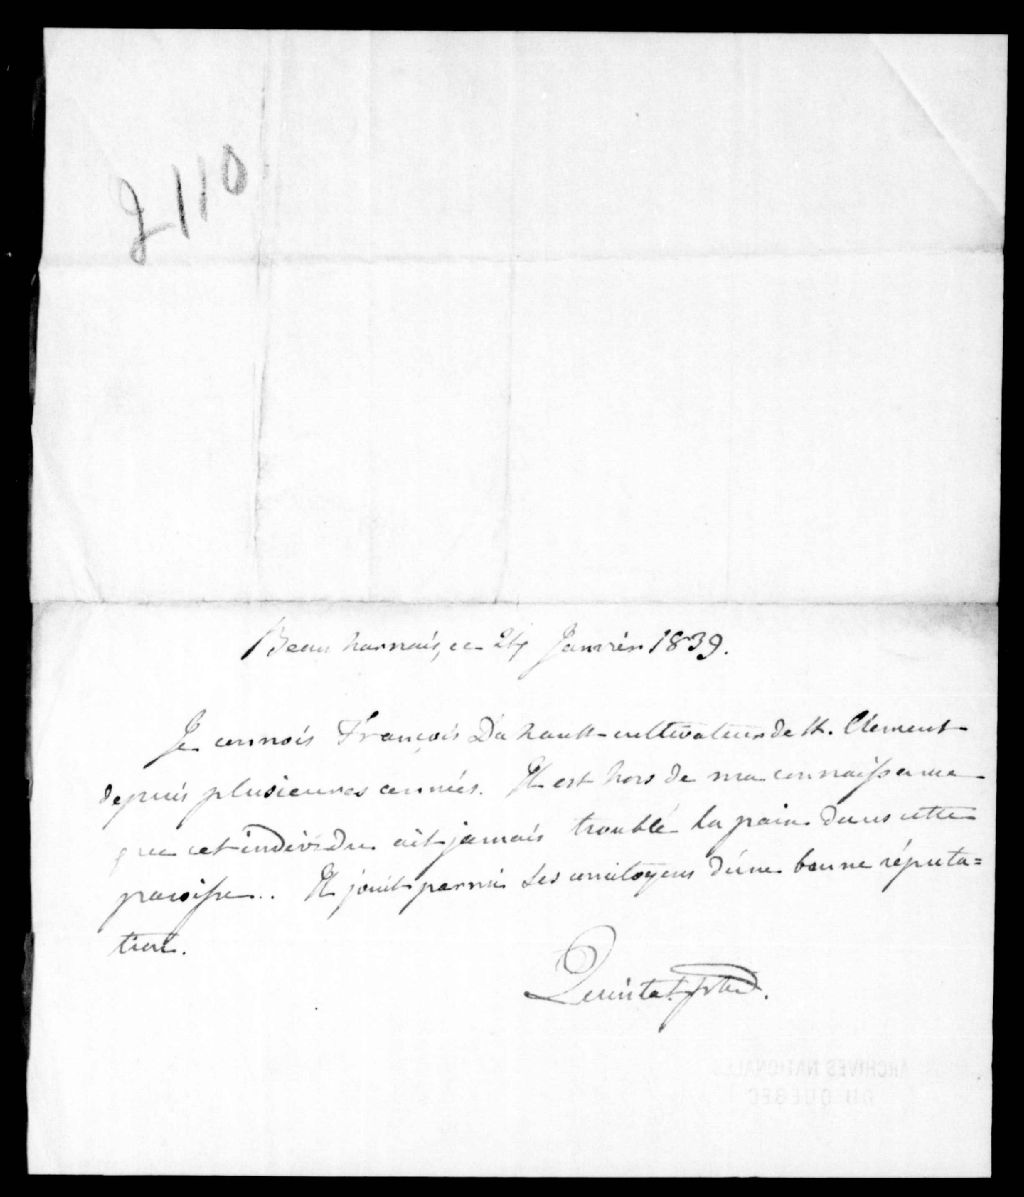 J 110
Beauharnais, ce 24 Janvier 1839.
Je connois François Dahault cultivateur de St. Clément
depuis plusieures années. Il est hors de ma connaissance
que cet individu ait jamais troublé la paix dans cette
paroisse.. Il jouit parmi ses concitoyens d'une bonne réputa=
tion.
Quintal. Ptre.
ARCHIVES NATIONALES
DU QUÉBEC